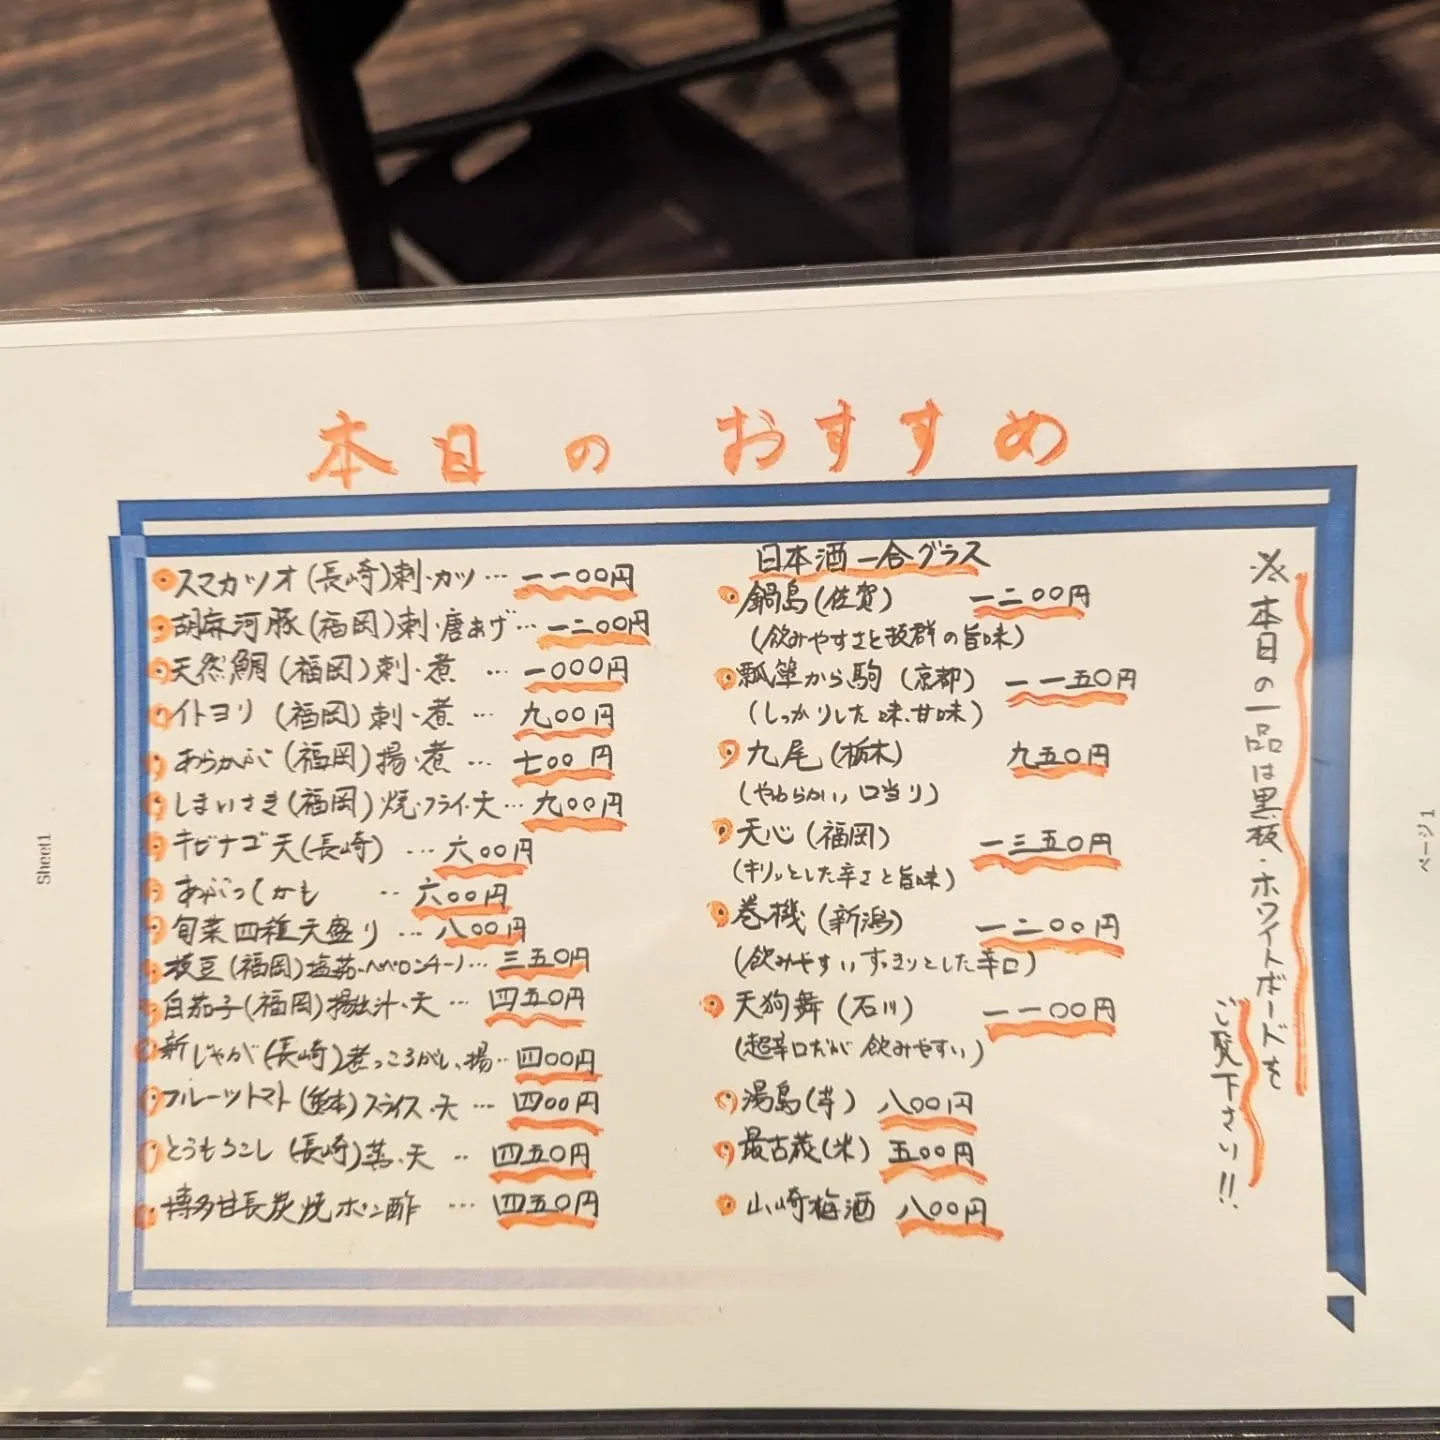 本日のおすすめ
スマカツオ(長崎)刺・カツ…一一〇〇円
胡麻河豚(福岡)刺・唐あげ…一二〇〇円
天然鯛(福岡)刺・煮 …一〇〇〇円
イトヨリ(福岡)刺・煮 … 九〇〇円
あらかぶ(福岡)揚・煮 … 七〇〇円
しまいさき(福岡)焼・フライ・天…九〇〇円
キビナゴ天(長崎) …六〇〇円
あぶってかも ‥六〇〇円
旬菜四種天盛り …八〇〇円
枝豆(福岡)塩茹・ペペロンチーノ…三五〇円
白茄子(福岡)揚出汁・天 … 四五〇円
新じゃが(長崎)煮っころがし、揚…四〇〇円
フルーツトマト(熊本)スライス・天 … 四〇〇円
とうもろこし(長崎)蒸・天 ‥ 四五〇円
博多甘長炭焼ポン酢 … 四五〇円
日本酒一合グラス
鍋島(佐賀) 一二〇〇円
(飲みやすさと抜群の旨味)
瓢箪から駒(京都) 一一五〇円
(しっかりした味、甘味)
九尾(栃木) 九五〇円
(やわらかい口当り)
天心(福岡) 一三五〇円
(キリッとした辛さと旨味)
巻機(新潟) 一二〇〇円
(飲みやすいすっきりとした辛口)
天狗舞(石川) 一一〇〇円
(超辛口だが飲みやすい)
湯島(芋) 八〇〇円
最古蔵(米) 五〇〇円
山崎梅酒 八〇〇円
※本日の一品は黒板・ホワイトボードを
ご覧下さい!!
Sheet1
ページ 1